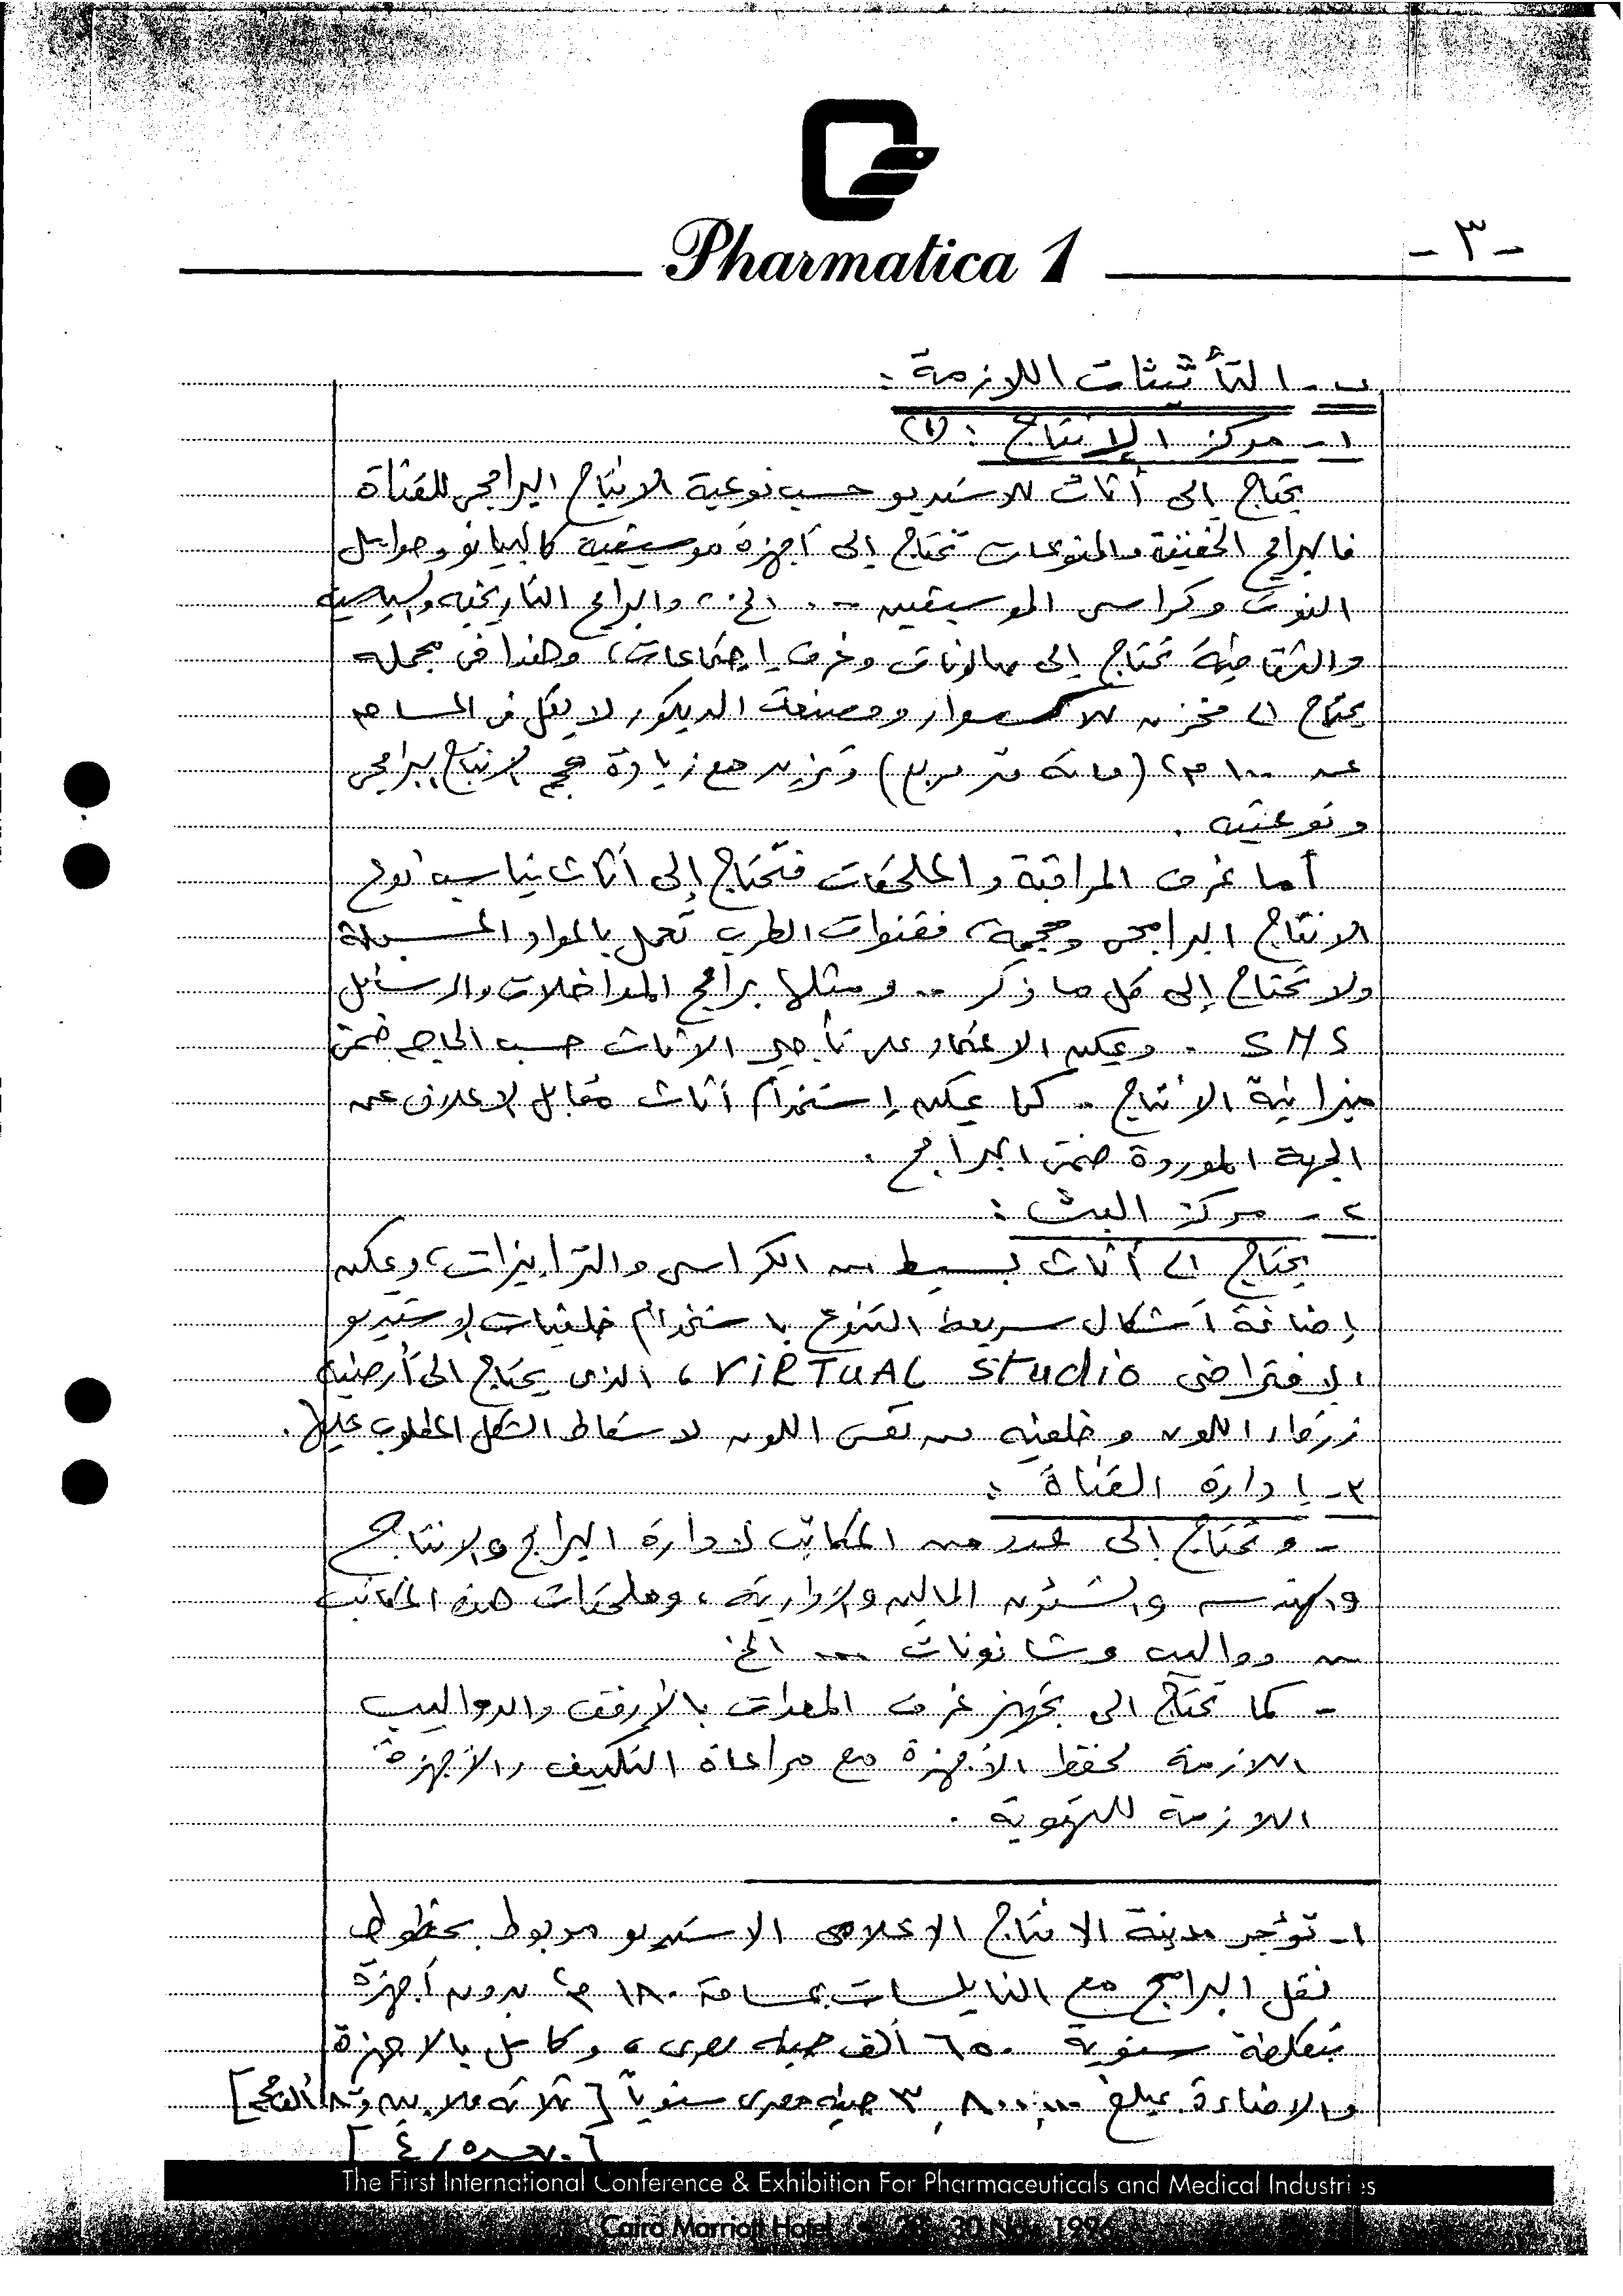 Pharmatica 1
- ٣ -
ب - التأثيثات اللازمة :
١ - مركز الإنتاج : (١)
يحتاج إلى أثاث للاستديو حسب نوعية الانتاج البرامجى للقناة
فالبرامج الخفيفة والمنوعات تحتاج إلى أجهزة موسيقية كالبيانو وحوامل
النوت وكراسى الموسيقيين .. الخ، والبرامج التاريخية والسياسية
والثقافية تحتاج إلى صالونات وغرف إجتماعات، وهذا فى مجمله
يحتاج الى مخزن للاكسسوار ومصنعات الديكور لا يقل فى المساحة
عن ١٠٠ م٢ (مائة متر مربع) وتزيد مع زيادة حجم الانتاج البرامجى
ونوعيته .
أما غرف المراقبة والملحقات فتحتاج إلى أثاث يناسب نوع
الانتاج البرامجى وحجمه، فقنوات الطرب تعمل بالمواد المسجلة
ولا تحتاج إلى كل ما ذكر .. ومثلها برامج المداخلات والرسائل
SMS . ويمكن الاعتماد على تأجير الاثاث حسب الحاجة ضمن
ميزانية الانتاج . كما يمكن إستخدام أثاث مقابل الاعلان عن
الجهة الموردة ضمن البرامج .
٢ - مركز البث :
يحتاج الى أثاث بسيط من الكراسى والترابيزات، ويمكن
إضافة أشكال سريعة التنوع باستخدام خلفيات الاستديو
الافتراضى VIRTUAL Studio ، الذى يحتاج الى أرضية
زرقاء اللون وخلفية من نفس اللون لاسقاط الشكل المطلوب عليها .
٣ - إدارة القناة :
- وتحتاج إلى عدد من المكاتب لإدارة البرامج والانتاج
والهندسة والشئون المالية والادارية، وملحقات هذه المكاتب
من دواليب وشانونات ... الخ
- كما تحتاج الى تجهيز غرف المعدات بالأرفف والدواليب
اللازمة لحفظ الأجهزة مع مراعاة التكييف والأجهزة
اللازمة للتهوية .
١ - تؤجر مدينة الانتاج الاعلامى الاستديو مربوط بخطوط
نقل البرامج مع النايلسات بمساحة ١٨٠ م٢ بدون أجهزة
بتكلفة سنوية ٦٥٠ ألف جنيه مصرى، وكامل بالاجهزة
والاضاءة بمبلغ ٣,٨٠٠,٠٠٠ جنيه مصرى سنوياً [ثلاثة ملايين و ٨٠٠ ألف
The First International Conference & Exhibition For Pharmaceuticals and Medical Industries
Cairo Marriott Hotel 28 - 30 Nov. 1996